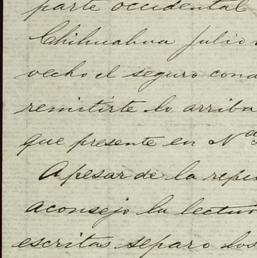 parte occidental
Chihuahua Julio
vecho el seguro con
remitirte lo arriba
que presente en N
Apesar de la repu
aconsejo la lectur
escritas separo los